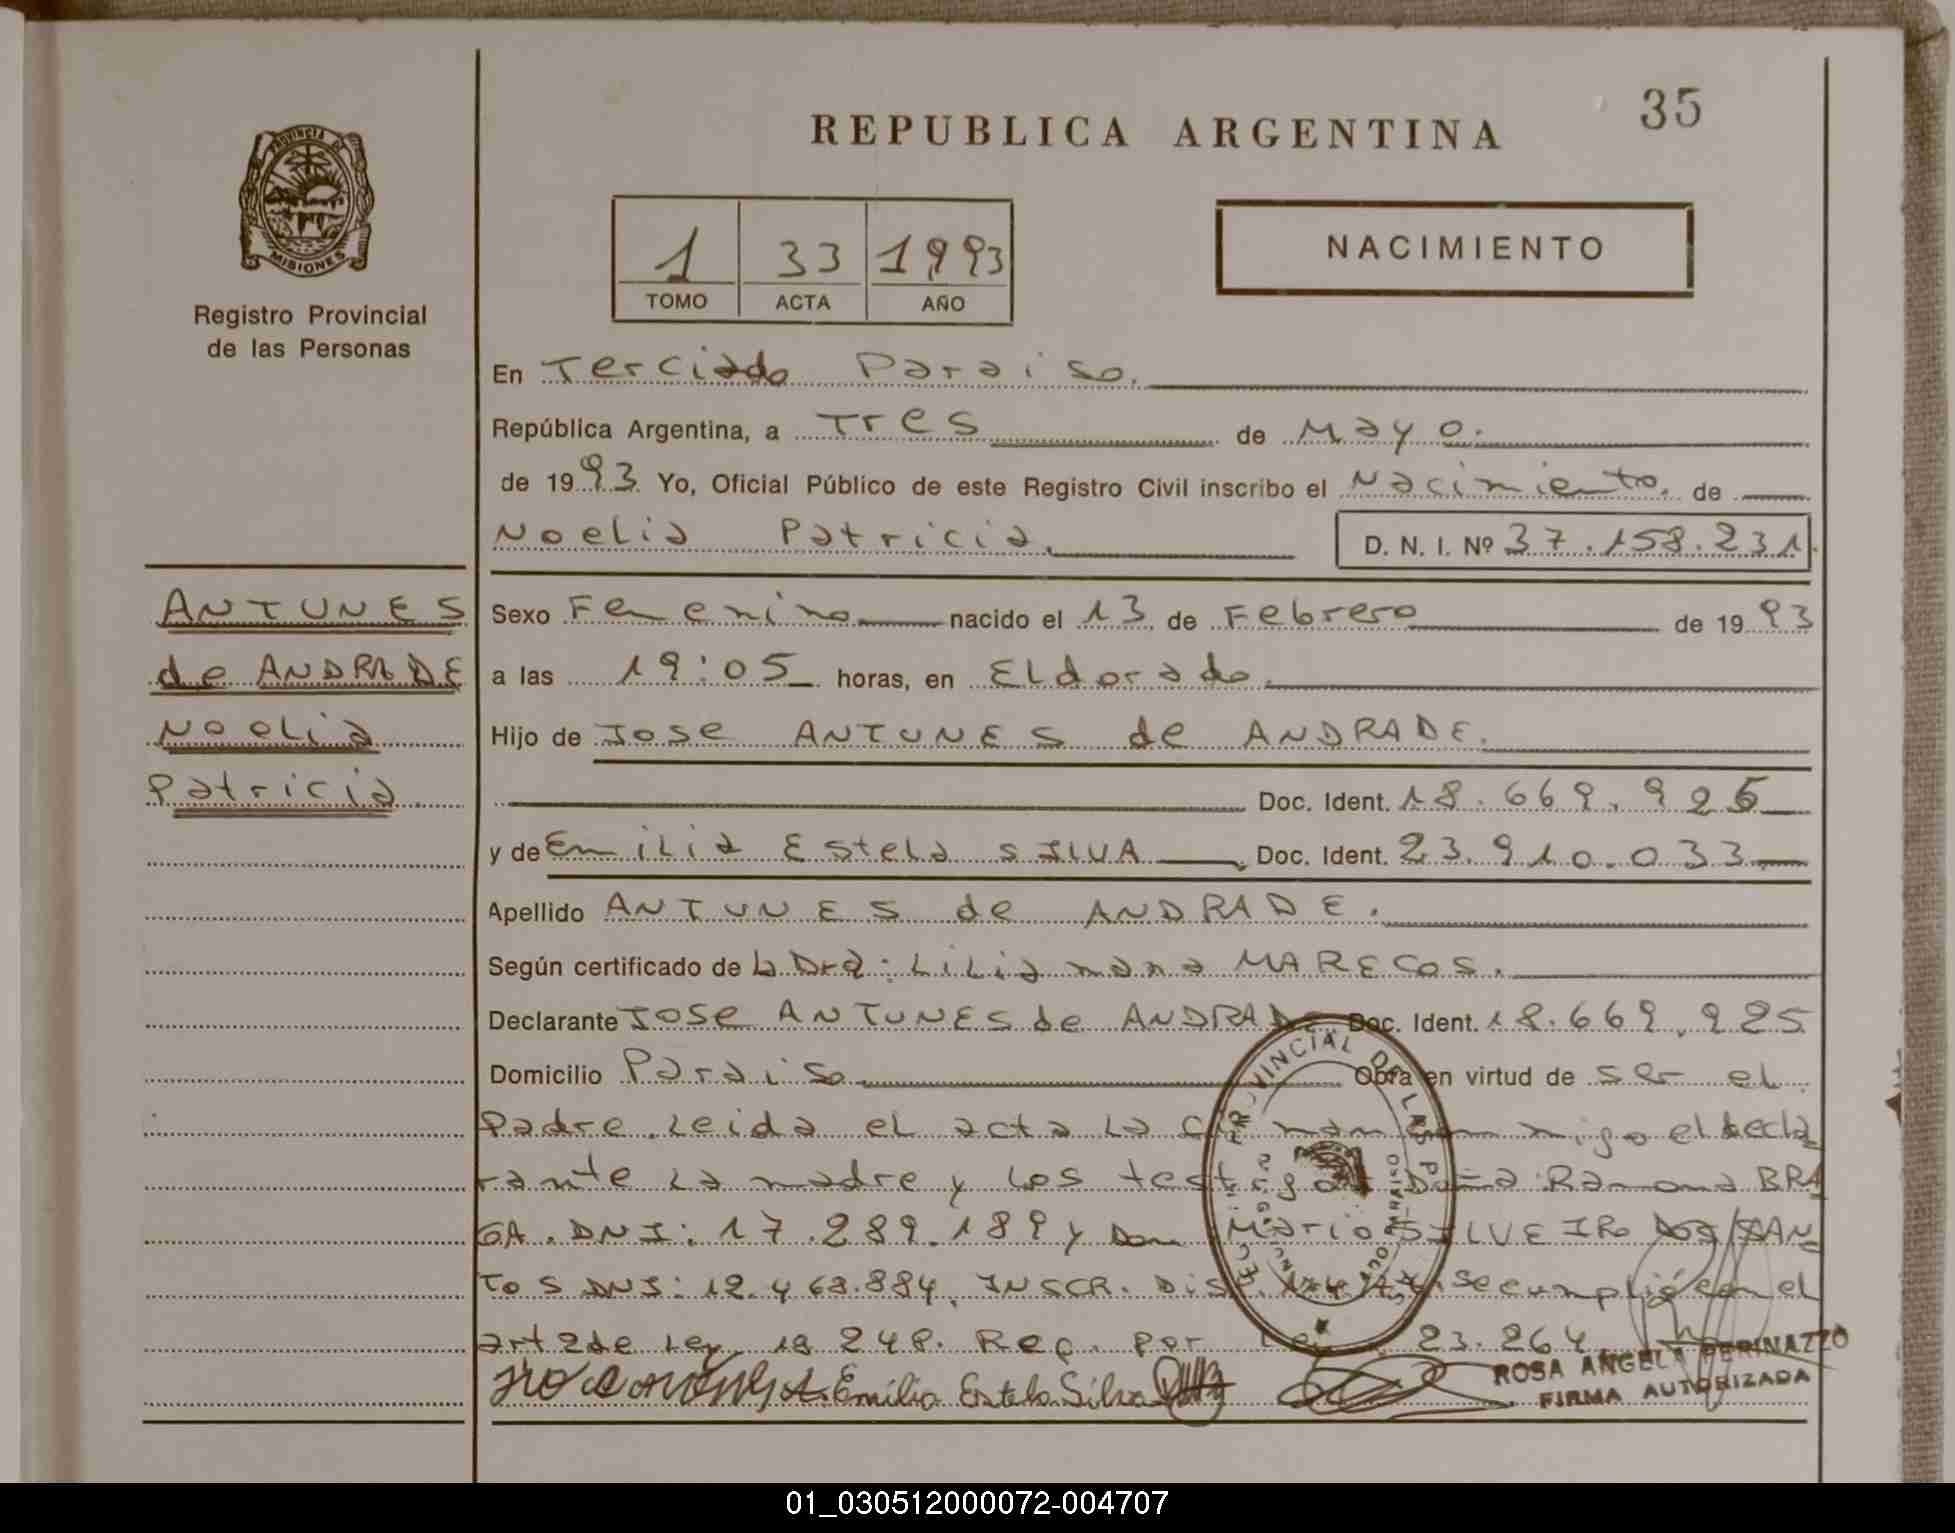 35
REPUBLICA ARGENTINA
PROVINCIA DE
MISIONES
Registro Provincial
de las Personas
1 33 1993
TOMO ACTA AÑO
NACIMIENTO
En Terciado Paraiso.
República Argentina, a Tres de Mayo.
de 1993. Yo, Oficial Público de este Registro Civil inscribo el Nacimiento. de
Noelia Patricia. D. N. I. Nº 37.158.231.
ANTUNES
de ANDRADE
Noelia
Patricia
Sexo Femenino nacido el 13 de Febrero de 1993
a las 19:05 horas, en Eldorado.
Hijo de Jose ANTUNES de ANDRADE.
Doc. Ident. 18.669.925
y de Emilia Estela SILVA, Doc. Ident. 23.910.033
Apellido ANTUNES de ANDRADE.
Según certificado de la Dra: Lilia nana MARECOS.
Declarante Jose ANTUNES de ANDRADE Doc. Ident. 18.669.925
Domicilio Paraiso Obra en virtud de ser el
Padre. Leida el acta La firman conmigo el decla
rante La madre y Los testigos Doña Ramona BRA
GA. DNI: 17.289.189 y Don Mario SILVEIRO DOS SAN
TOS DNI: 12.468.884. INSCR. Dis. Se cumplió con el
art 2 de Ley. 18 248. Req. por Ley 23.264
Emilia Estela Silva
ROSA ANGELA PERINAZZO
FIRMA AUTORIZADA
01_030512000072-004707